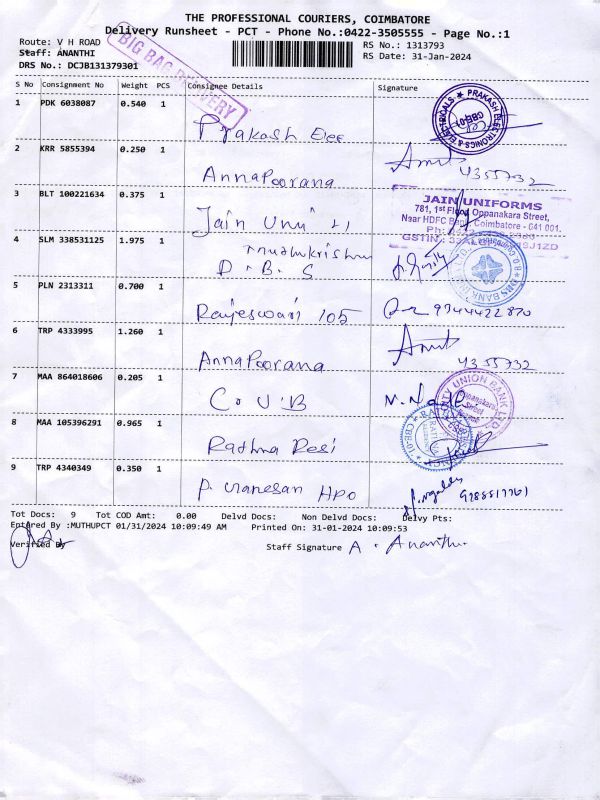 THE PROFESSIONAL COURIERS, COIMBATORE
Delivery Runsheet - PCT - Phone No.:0422-3505555 - Page No.:1
Route: V H ROAD
RS No.: 1313793
Staff: ANANTHI
RS Date: 31-Jan-2024
DRS No.: DCJB131379301
BIG BAG DELIVERY
S No Consignment No Weight PCS Consignee Details Signature
1 PDK 6038087 0.540 1
Prakash Elec
PRAKASH ELECTRONICS & ELECTRICALS
2 KRR 5855394 0.250 1
Annapoorana
4355732
3 BLT 100221634 0.375 1
Jain Uni
JAIN UNIFORMS
781, 1st Floor, Oppanakara Street,
Near HDFC Bank, Coimbatore - 641 001.
4 SLM 338531125 1.975 1
D.B.S
DBS BANK
5 PLN 2313311 0.700 1
Rajeswari 105
9344422870
6 TRP 4333995 1.260 1
Annapoorana
4355732
7 MAA 864018606 0.205 1
C.U.B
CITY UNION BANK LTD.
Oppanakara
Street
8 MAA 105396291 0.965 1
Rathna
9 TRP 4340349 0.350 1
HPO
Tot Docs: 9 Tot COD Amt: 0.00 Delvd Docs: Non Delvd Docs: Delvy Pts:
Entered By :MUTHUPCT 01/31/2024 10:09:49 AM Printed On: 31-01-2024 10:09:53
Verified By
Staff Signature A. Ananthi